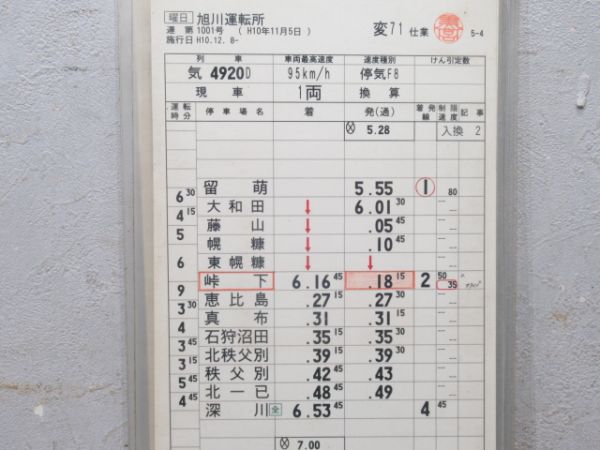 曜日 旭川運転所
運 第1001号 ( H10年11月5日 ) 変71 仕業 5-4
施行日 H10.12. 8-
列車 車両最高速度 速度種別 けん引定数
気 4920D 95km/h 停気F8
現車 1両 換算
運転時分 停車場名 着 発(通) 着発線 制限速度 記事
⊗ 5.28 入換 2
留萌 5.55 1 80
6 30
大和田 ↓ 6.01 30
4 15
藤山 ↓ .05 45
5
幌糠 ↓ .10 45
東幌糠 ↓ ↓
6
峠下 6.16 45 .18 15 2 50 35
9
恵比島 .27 15 .27 30
3 30
真布 .31 .31 15
3
石狩沼田 .35 15 .35 30
3 45
北秩父別 .39 15 .39 30
3 15
秩父別 .42 45 .43
5 45
北一已 .48 .49
4 45
深川 全 6.53 45 4 45
⊗ 7.00